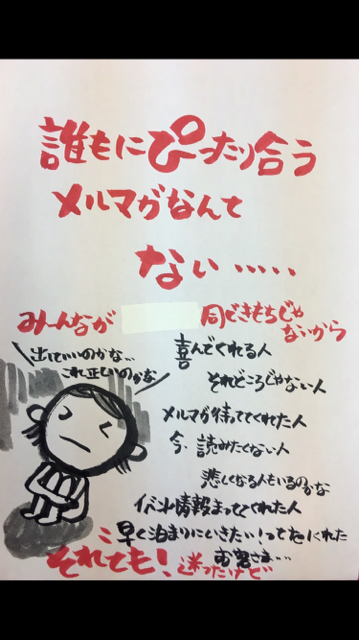 誰もにぴったり合う
メルマガなんて
ない・・・・・
みーんなが
同じきもちじゃ
ないから
出していいのかな…
これ正しいのかな
喜んでくれる人
それどころじゃない人
メルマガ待っててくれた人
今、読みたくない人
悲しくなる人もいるのかな
イベント情報まっててくれた人
早く泊まりにいきたい!ってもくれた
お客さま…
それでも!迷ったけど